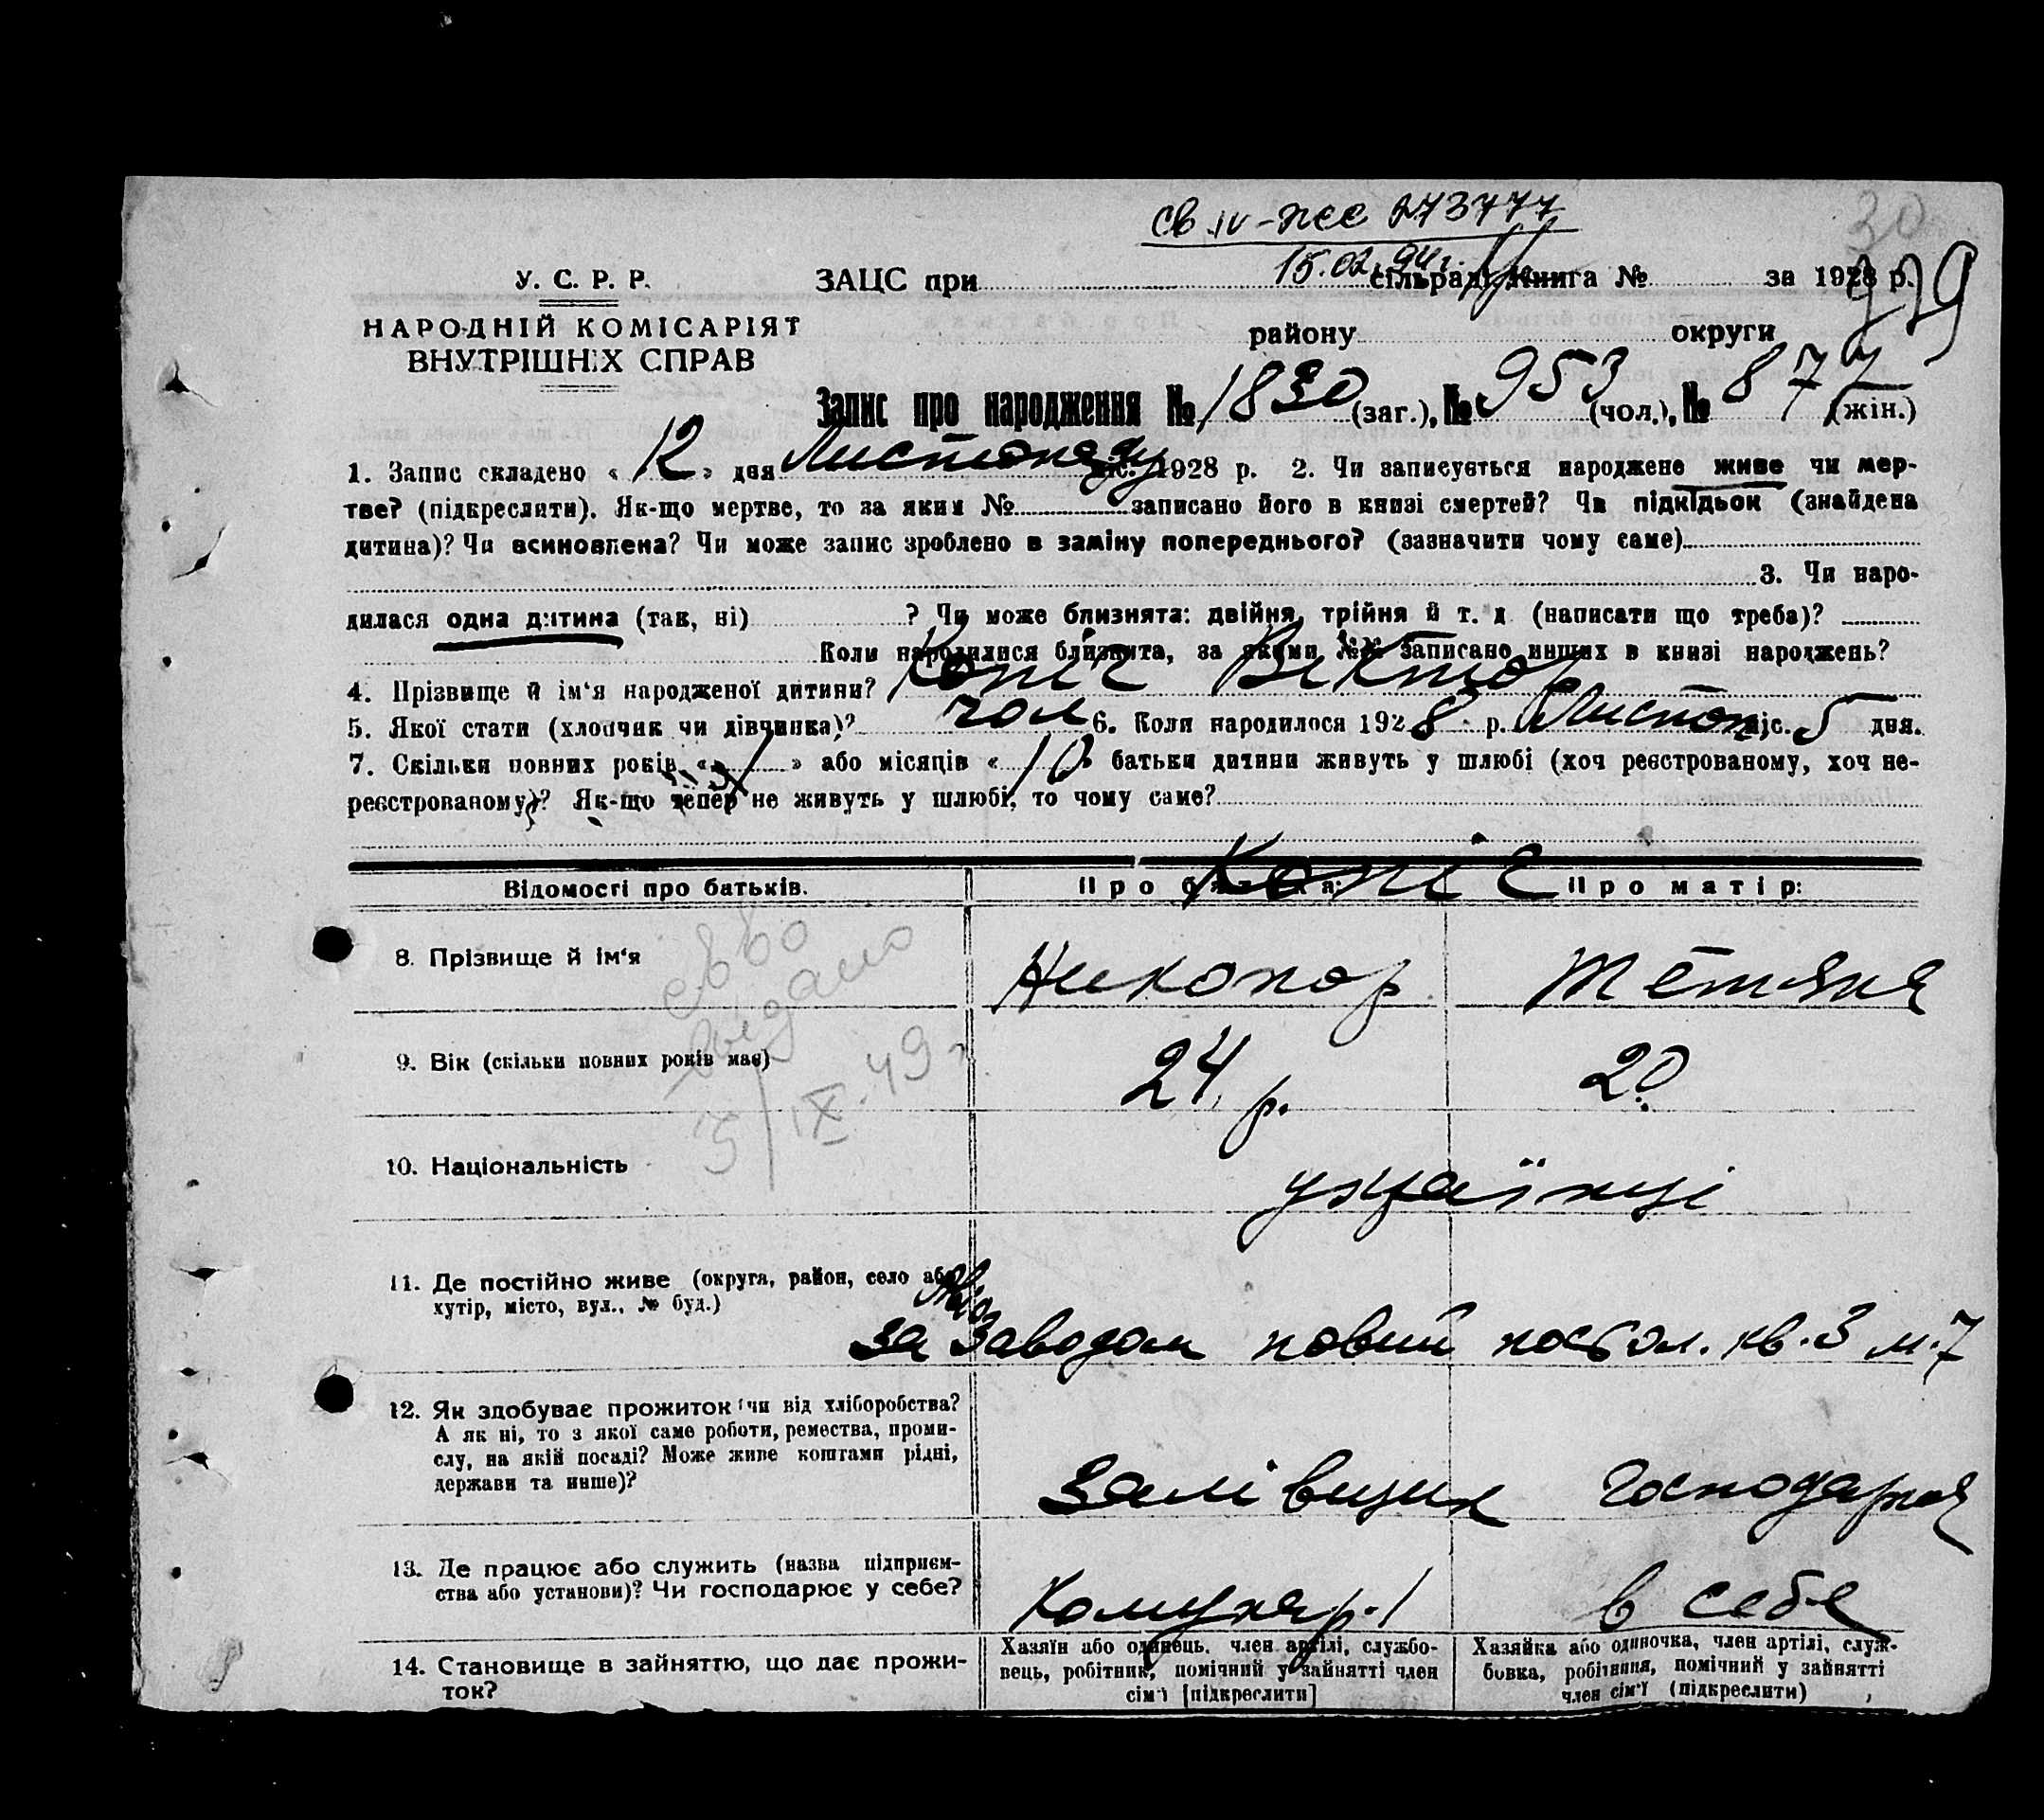 св. IV-ЖС 273777
30
15.02.94 г.
229
У. С. Р. Р.
НАРОДНІЙ КОМІСАРІЯТ
ВНУТРІШНІХ СПРАВ
ЗАЦС при сільраді Книга № за 1928 р.
району округи
Запис про народження № 1830 (заг.), № 953 (чол.), № 877 (жін.)
1. Запис складено « 12 » дня Листопаду міс. 1928 р. 2. Чи записується народжене живе чи мер-
тве? (підкреслити). Як-що мертве, то за яким № записано його в книзі смертей? Чи підкідьок (знайдена
дитина)? Чи всиновлена? Чи може запис зроблено в заміну попереднього? (зазначити чому саме)
3. Чи наро-
дилася одна дитина (так, ні) ? Чи може близнята: двійня, трійня й т. д. (написати що треба)?
Коли народилися близнята, за якими №№ записано инших в книзі народжень?
4. Прізвище й ім'я народженої дитини? Копіє Віктор
5. Якої стати (хлопчик чи дівчинка)? чол 6. Коли народилося 1928 р. Листоп. міс. 5 дня.
7. Скільки повних років « » або місяців « 10 » батьки дитини живуть у шлюбі (хоч реєстрованому, хоч не-
реєстрованому)? Як-що тепер не живуть у шлюбі, то чому саме?
Копіє
Відомості про батьків. Про батька: Про матір:
8. Прізвище й ім'я Никонор Тетяна
св-во
видано
5/IX.49 г.
9. Вік (скільки повних років має) 24 р. 20
10. Національність українці
11. Де постійно живе (округа, район, село або
хутір, місто, вул., № буд.)
за Заводом новий посьол. кв. 3 м. 7
12. Як здобуває прожиток чи від хліборобства?
А як ні, то з якої саме роботи, ремества, проми-
слу, на якій посаді? Може живе коштами рідні,
держави та инше)?
Залівщик Господарка
13. Де працює або служить (назва підприєм-
ства або установи)? Чи господарює у себе?
Комунар. 1 в себе
14. Становище в зайняттю, що дає прожи-
ток?
Хазяїн або одинець, член артілі, службо-
вець, робітник, помічний у зайнятті член
сім'ї [підкреслити]
Хазяйка або одиночка, член артілі, служ-
бовка, робітниця, помічний у зайнятті
член сім'ї (підкреслити)